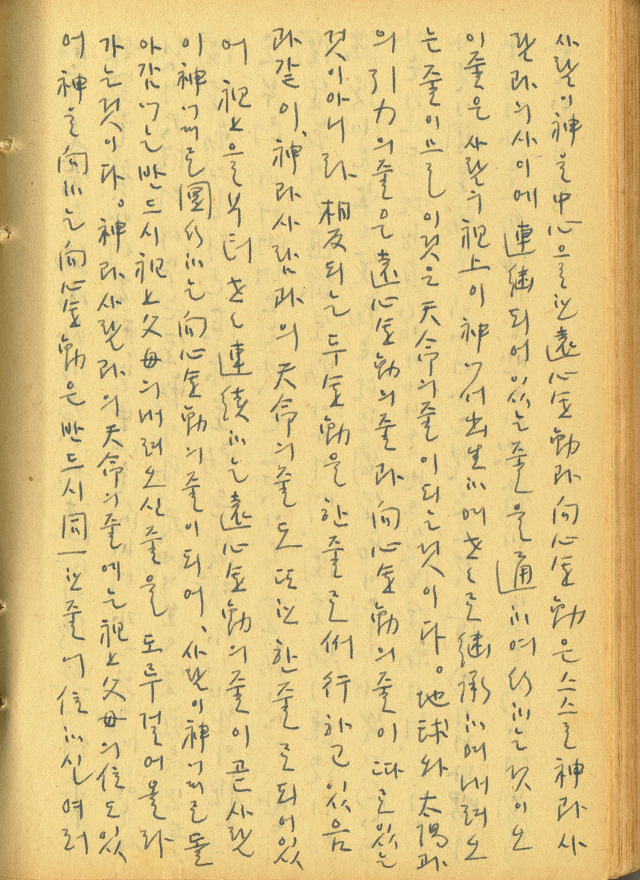 사람이 神을 中心으로한 遠心運動과 向心運動은 스스로 神과 사
람과의 사이에 連繼되어 있는 줄을 通하여 行하는 것이오
이 줄은 사람의 祖上이 神에서 出生하여 代代로 繼承하여 내려오
는 줄이므로 이것은 天命의 줄이 되는 것이다。地球와 太陽과
의 引力의 줄은 遠心運動의 줄과 向心運動의 줄이 따로 있는
것이 아니라 相反되는 두 運動을 한 줄로 倂行하고 있음
과 같이、神과 사람과의 天命의 줄도 또한 한 줄로 되어 있
어 祖上으로부터 代代 連續하는 遠心運動의 줄이 곧 사람
이 神에게로 圓行하는 向心運動의 줄이 되어、사람이 神에게로 돌
아감에는 반드시 祖上父母의 내려오신 줄을 도루 걸어올라
가는 것이다。神과 사람과의 天命의 줄에는 祖上父母의 位도 있
어 神을 向하는 向心運動은 반드시 同一한 줄에 位하신 여러